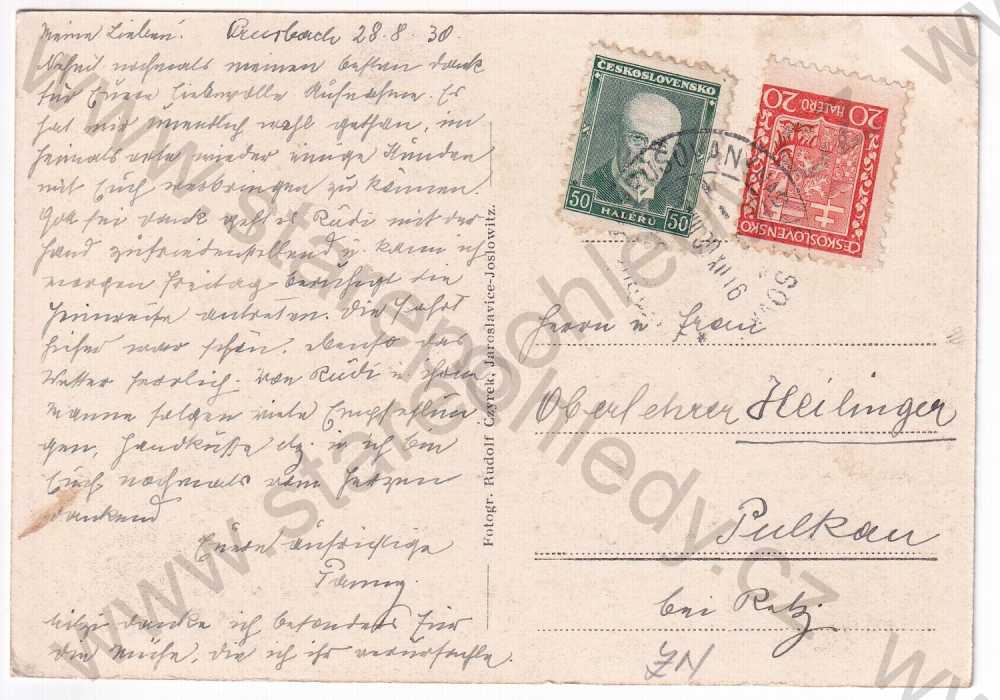 Meine Lieben! Grusbach 28.8.30.
Nehmt nochmals meinen besten Dank
für Euere liebevolle Aufnahme. Es
hat mir unendlich wohl gethan, im
wieder einige Stunden
mit Euch verbringen zu können.
Gott sei Dank geht es Rüdi mit der
Hand zufriedenstellend u. kann ich
morgen Freitag beruhigt die
Heimreise antreten. Die Fahrt
hieher war schön, ebenso das
Wetter herrlich. Von Rüdi u. ihrem
Manne folgen viele Empfehlun
gen, Handküsse etz. u. ich bin
Euch nochmals vom Herzen
dankend
Euere aufrichtige
danke ich besonders für
die Mühe, die ich ihr verursachte.
Fotogr. Rudolf Czyrek, Jaroslavice-Joslowitz.
ČESKOSLOVENSKO
50 HALÉŘŮ 50
20 HALÉŘŮ 20
ČESKOSLOVENSKO
Herrn u. Frau
Oberlehrer Heilinger
Pulkau
bei Retz
ZN
www.starepohledy.cz